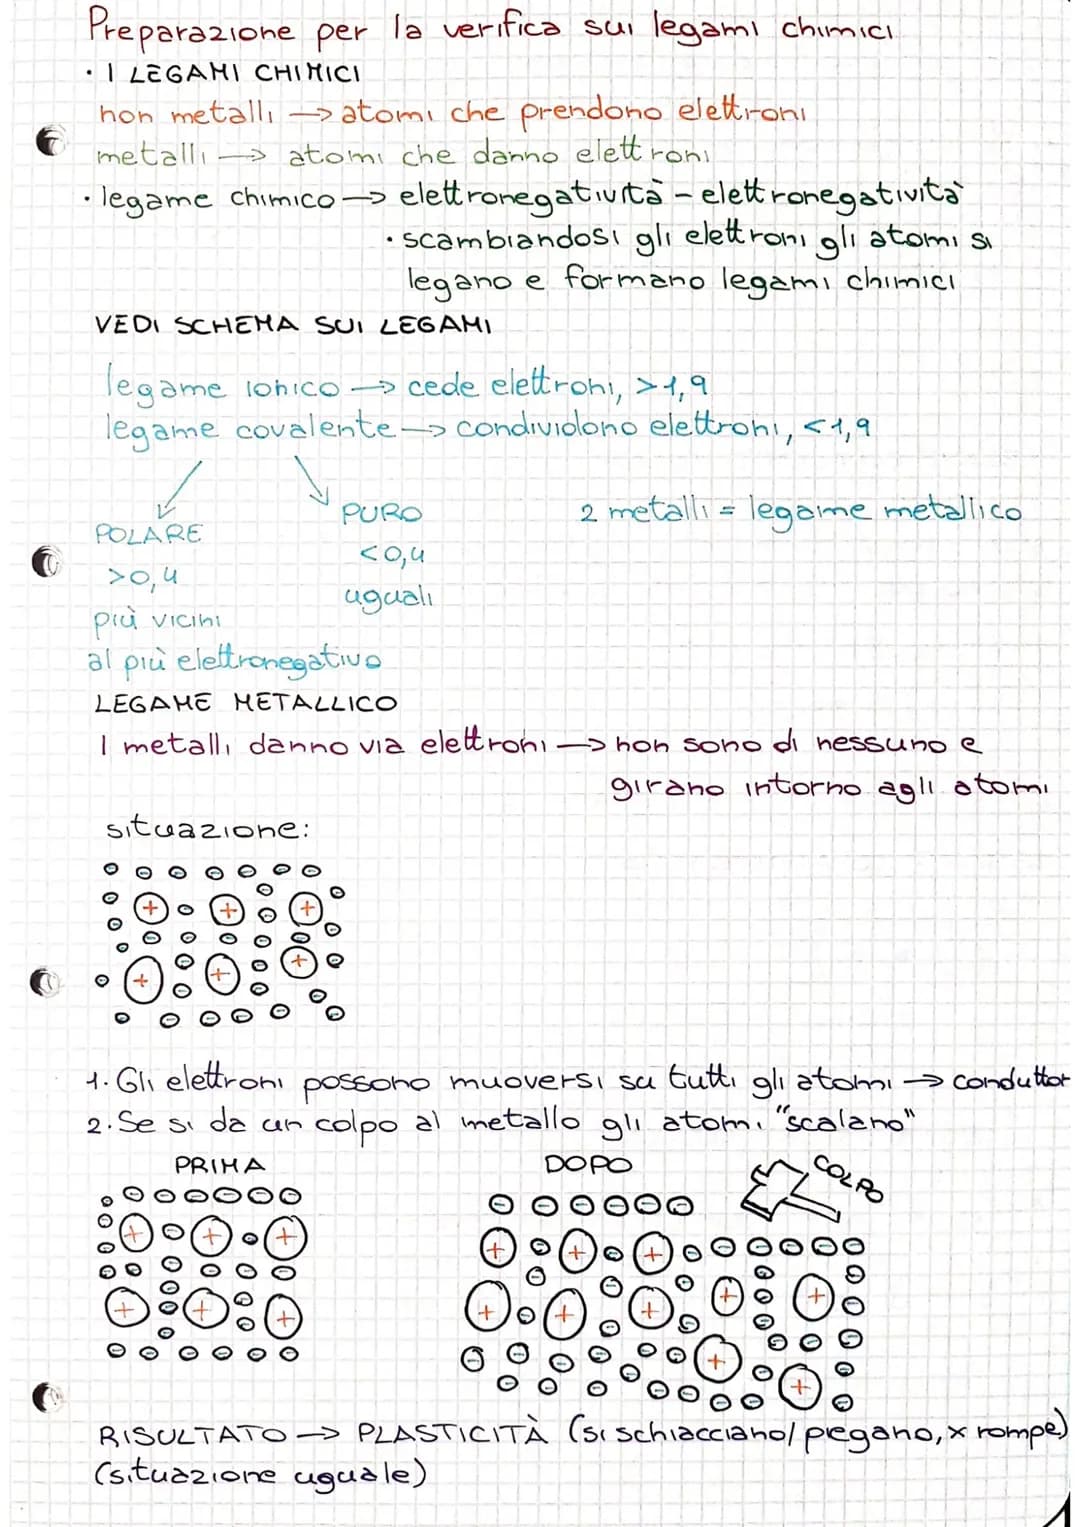 Preparazione per la verifica sui legami chimici
• I LEGAMI CHIMICI
non metalli → atomi che prendono elettroni
metalli → atomi che danno elettroni
• legame chimico → elettronegatività - elettronegatività
• scambiandosi gli elettroni gli atomi si
legano e formano legami chimici
VEDI SCHEMA SUI LEGAMI
legame ionico → cede elettroni, >1,9
legame covalente → condividono elettroni, <1,9
POLARE
>0,4
più vicini
al più elettronegativo
PURO
<0,4
uguali
2 metalli = legame metallico
LEGAME METALLICO
I metalli danno via elettroni → non sono di nessuno e
girano intorno agli atomi
situazione:
1. Gli elettroni possono muoversi su tutti gli atomi → conduttor
2. Se si da un colpo al metallo gli atomi "scalano"
PRIMA
DOPO
COLPO
RISULTATO → PLASTICITÀ (si schiacciano/piegano, x rompe)
(situazione uguale)